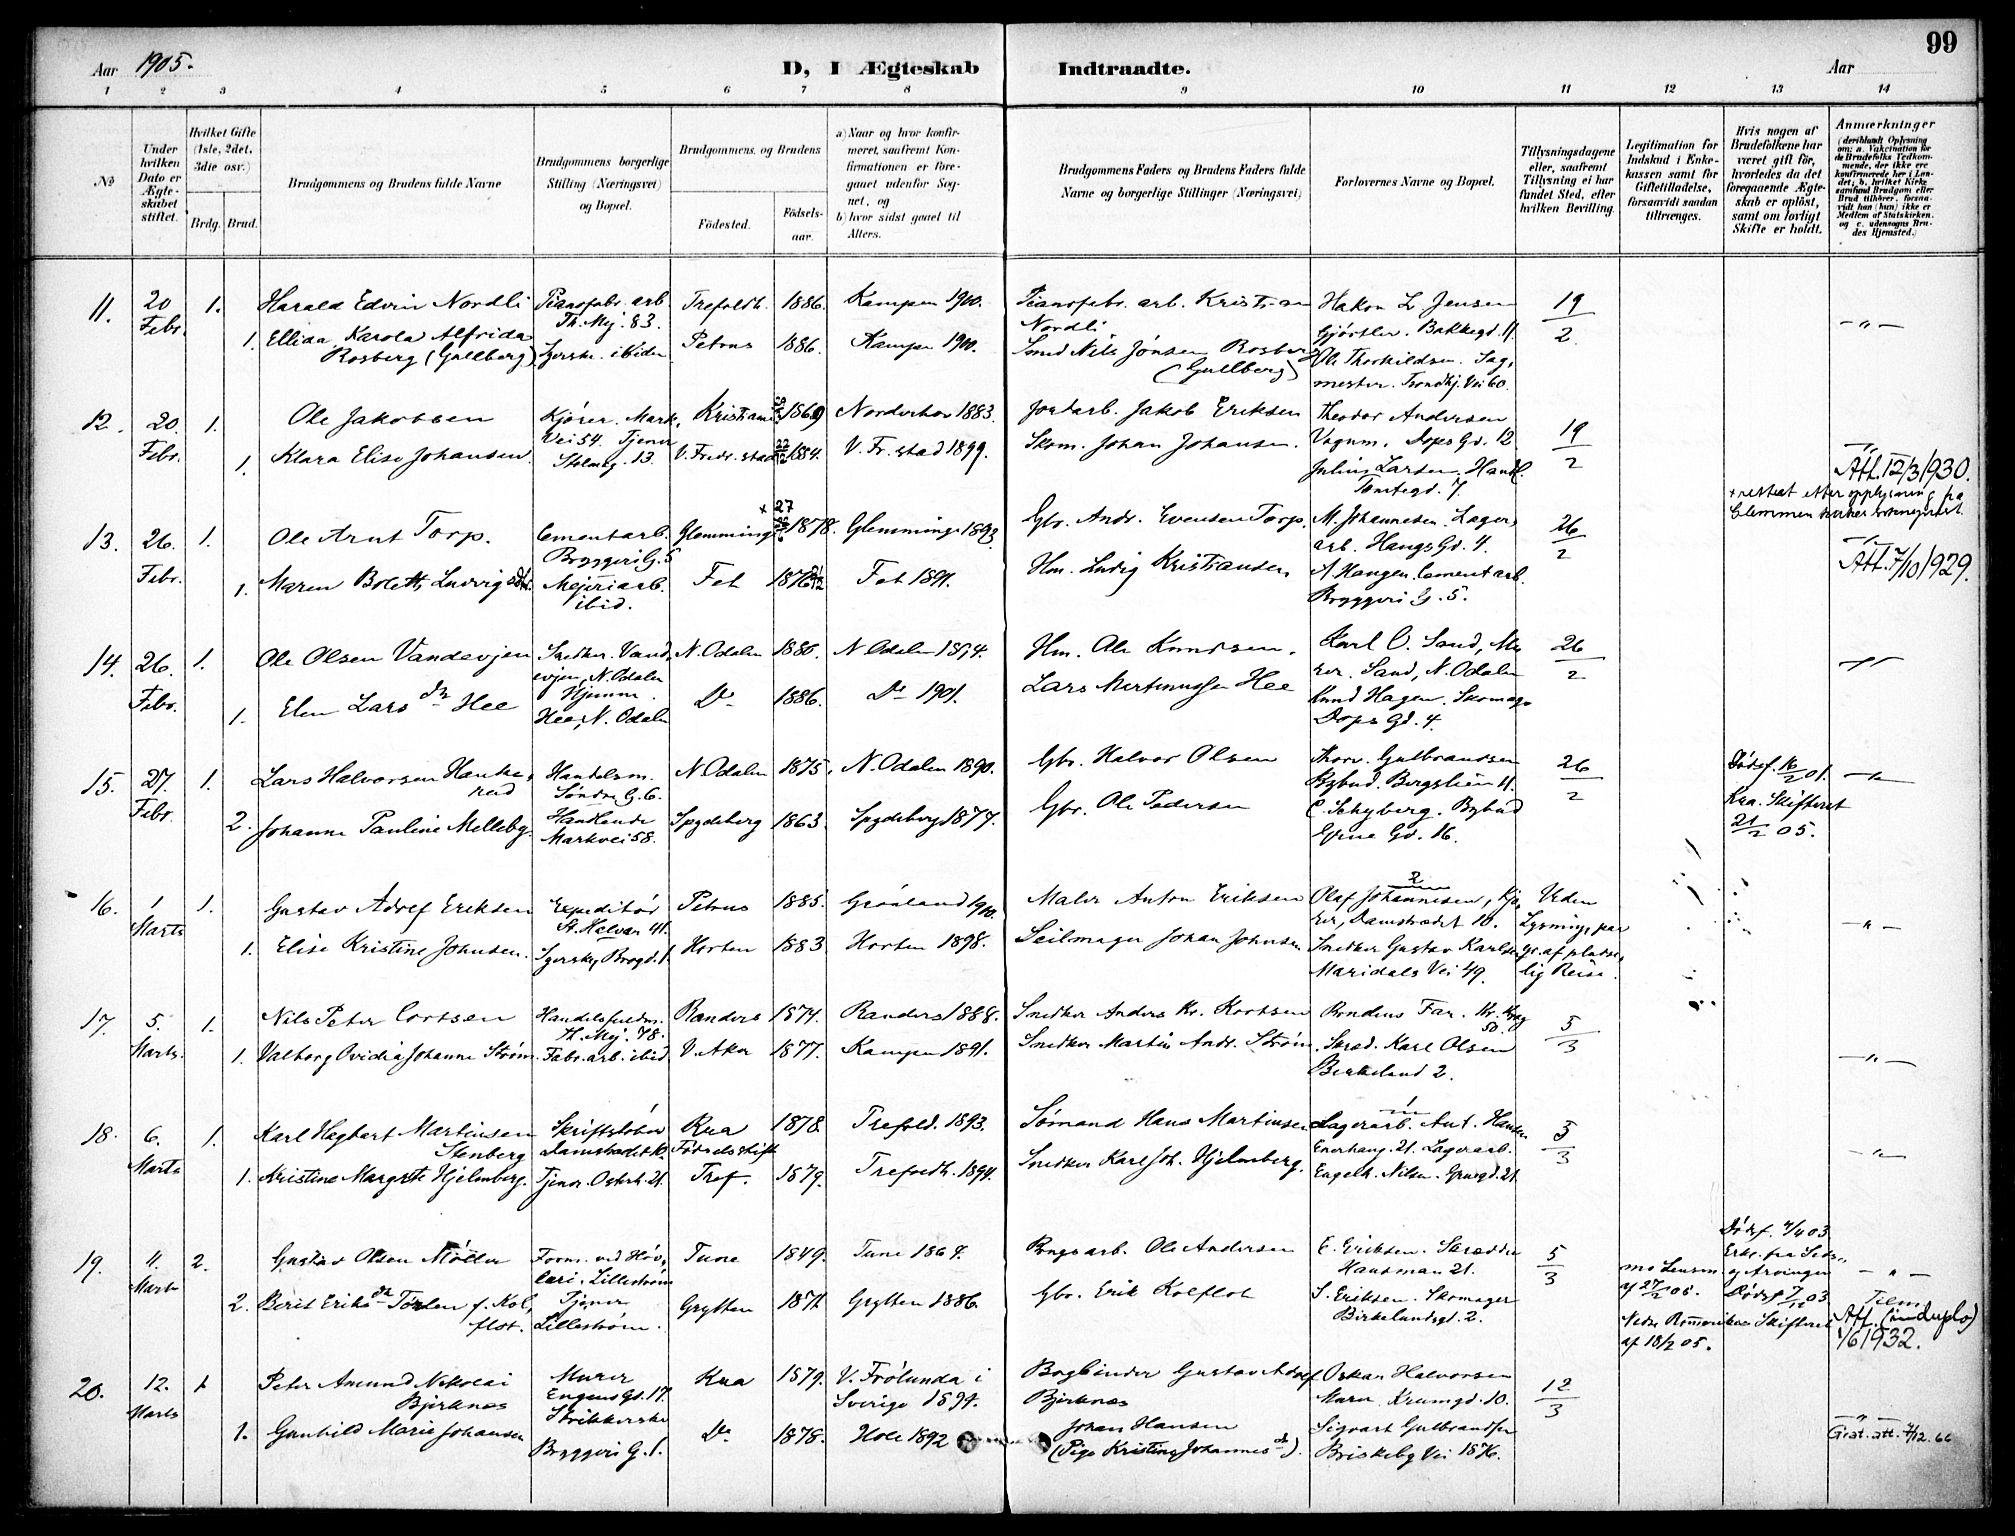 99
Aar 1905.
D, I Ægteskab Indtraadte.
Aar
1 2 3 4 5 6 7 8 9 10 11 12 13 14
No
Under hvilken Dato er Ægteskabet stiftet.
Hvilket Gifte (1ste, 2det, 3die osv.)
Brdg. Brud.
Brudgommens og Brudens fulde Navne
Brudgommens borgerlige Stilling (Næringsvei) og Bopæl.
Brudgommens og Brudens
Födested. Födsels-aar.
a) Naar og hvor konfirmeret, saafremt Konfirmationen er foregaaet udenfor Sognet, og
b) hvor sidst gaaet til Alters.
Brudgommens Faders og Brudens Faders fulde Navne og borgerlige Stillinger (Næringsvei)
Forlovernes Navne og Bopæl.
Tillysningsdagene eller, saafremt Tillysning ei har fundet Sted, efter hvilken Bevilling.
Legitimation for Indskud i Enkekassen samt for Giftetilladelse, forsaavidt saadan tiltrænges.
Hvis nogen af Brudefolkene har været gift för, hvorledes da det foregaaende Ægteskab er oplöst, samt om lovligt Skifte er holdt.
Anmærkninger
(deriblandt Oplysning om: a. Vakcination for de Brudefolks Vedkommende, der ikke ere konfirmerede her i Landet; b. hvilket Kirkesamfund Brudgom eller Brud tilhörer, forsaavidt han (hun) ikke er Medlem af Statskirken, og c. udensogns Brudes Hjemsted.)
11. 20 Febr. 1. Harald Edvin Nordli Pianofabr. arb. Th. Mej. 83. Trefoldh. 1886. Kampen 1900. Pianofabr. arb. Kristian Nordli. Hakon L. Jensen Gjørtler. Bakkegd. 11. 19/2 —"—
1. Ellida Karola Alfrida Rosberg (Gullberg). Syerske. ibiden Petrus 1886. Kampen 1900. Smed Nils Jönsen Rosberg (Gullberg) Ole Thorkildsen. Sagmester. Trondhj. Vei 60.
12. 20. Febr. 1. Ole Jakobsen Kjører. Mark. Vei 54. Kristiania 1869 Norderhov 1883. Jordarb. Jakob Eriksen Theodor Andersen Vognm. Dops Gd. 12 19/2 —"—
1. Klara Elise Johansen. Tjener Stolmg. 13. V. Fredr. stad 1884. V. Fr. stad 1899. Skom. Johan Johansen. Julius Larsen. Handl. Tomtegd. 7. Att. 12/3 1930.
+ rettet efter opplysning fra Glemmen kirkes sokneprest.
13. 26. Febr. 1. Ole Arnt Torp. Cementarb. Bryggeri G. 5 Glemminge + 27 1878. Glemminge 1893. Gbr. Andr. Evensen Torp M. Johannesen. Lagerarb. Haugs Gd. 4. 26/2 —"—
1. Maren Bolette Ludvigsdtr. Mejeriarb. ibid. Fet 1876 Fet 1891. Hm. Ludvig Kristiansen A. Haugen. Cementarb. Bryggeri G. 5. Att. 7/10 1929.
14. 26. Febr. 1. Ole Olsen Vandevjen Snedker. Vandevjen, N. Odalen N. Odalen 1880. N. Odalen 1894. Hm. Ole Knudsen. Karl O. Sand, Murer. Sand, N. Odalen 26/2 —"—
1. Elen Larsdtr Hee Hjemme. Hee, N. Odalen Do 1886. Do 1901. Lars Martinussen Hee Knud Hagen. Skomager Dops Gd. 4.
15. 27. Febr. 1. Lars Halvorsen Hankerud Handelsm. Søndre G. 6. N. Odalen 1875. N. Odalen 1890. Gbr. Halvor Olsen Thorv. Gulbrandsen Bybud. Bergslien 11. 26/2 Dødsf. 16/2 01. —"—
2. Johanne Pauline Melleby. Handlende Markvei 58. Spydeberg 1863. Spydeberg 1877. Gbr. Ole Pedersen C. Schyberg. Bybud Grüne Gd. 16. Kra. Skifteret 21/2 05.
16. 1 Marts 1. Gustav Adolf Eriksen Expeditør St. Halvar. 41. Petrus 1885. Grønland 1900. Maler Anton Eriksen Olaf Johannesen, Kjører, Damstrædet 10. Uden Lysning paa —"—
1. Elise Kristine Johnsen. Syerske, Brogd. 1. Horten 1883. Horten 1898. Seilmager Johan Johnsen Snedker Gustav Karlsen Maridals Vei 49. gr. af pludselig Reise.
17. 5. Marts. 1. Nils Peter Cortsen Handelsfuldm. Th. Mej. 78. Randers 1874. Randers 1888. Snedker Anders Kr. Kortsen Brudens Far. 5/3
1. Valborg Ovidia Johanne Strøm Fabr. arb. ibid. V. Aker 1877. Kampen 1891. Snedker Martin Andr. Strøm. Skræd. Karl Olsen Birkelund 2. —"—
18. 6. Marts 1. Karl Hagbart Martinsen Stenberg Skriftstøber Damstrædet 10. Kra Fødselsstift 1878. Trefold. 1893. Sømand Hans Martinsen Lagerarb. Ant. Hansen Enerhaug. 21. 5/3 —"—
1. Kristine Margrete Hjelmberg. Tjener. Osterh. 21. Tref. 1879. Trefoldh. 1894. Snedker Karl Joh. Hjelmberg. Lagerarb. Engelh. Nilsen. Grusgd. 21.
19. 11. Marts 2. Gustav Olsen Møller Form. ved Høvleri. Lillestrøm Tune 1849. Tune 1864. Brugsarb. Ole Andersen E. Eriksen. Skrædder Hausman 21. 5/3 Dødsf. 4/4 03 —"—
2. Berit Eriksdtr Torslen f. Kolflot. Tjener Lillestrøm. Grytten 1871 Grytten 1886. Gbr. Erik Kolflot S. Eriksen. Skomager Birkelundsgd. 2. Nedre Romerikes Skifteret af 18/2 05. Att. (induplo) 1/6 1932.
20. 12. Marts 1 Peter Amund Nikolai Bjerknes Murer Engens Gd. 17. Kra 1879. V. Frölunda i Sverige 1894. Bogbinder Gustav Adolf Bjerknes Oskar Halvorsen Murer. Krumgd. 10. 12/3
1. Gunhild Marie Johansen Strikkerske Bryggeri G. 1. Do 1878. Hole 1892 Johan Hansen (Pige Kristine Johannesdr). Sigvart Gulbrandsen Briskeby Vei 18 K. —"—
Grat. att. 7/12. 66